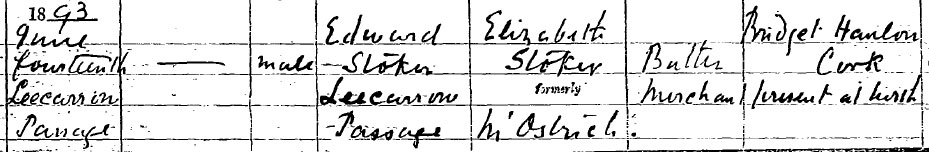 1893
June Edward Elizabeth Bridget Hanlon
fourteenth — male Stoker Stoker Butter Cork
Leecarrow Leecarrow formerly Merchant present at birth
Passage Passage McOstrich